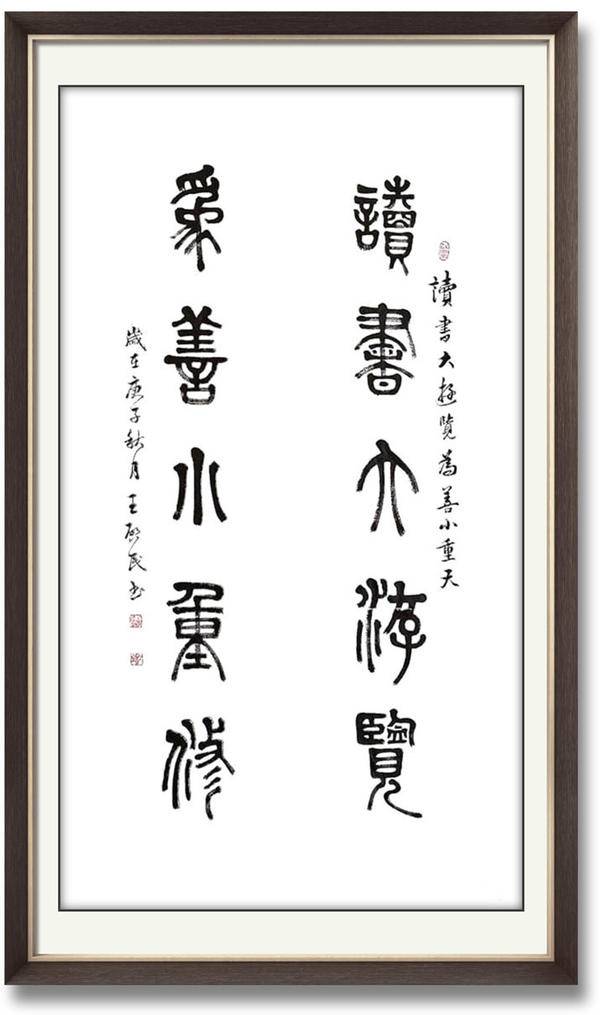 讀書大遊覽為善小重天
讀書大游覽
為善小重修
歲在庚子秋月王民书